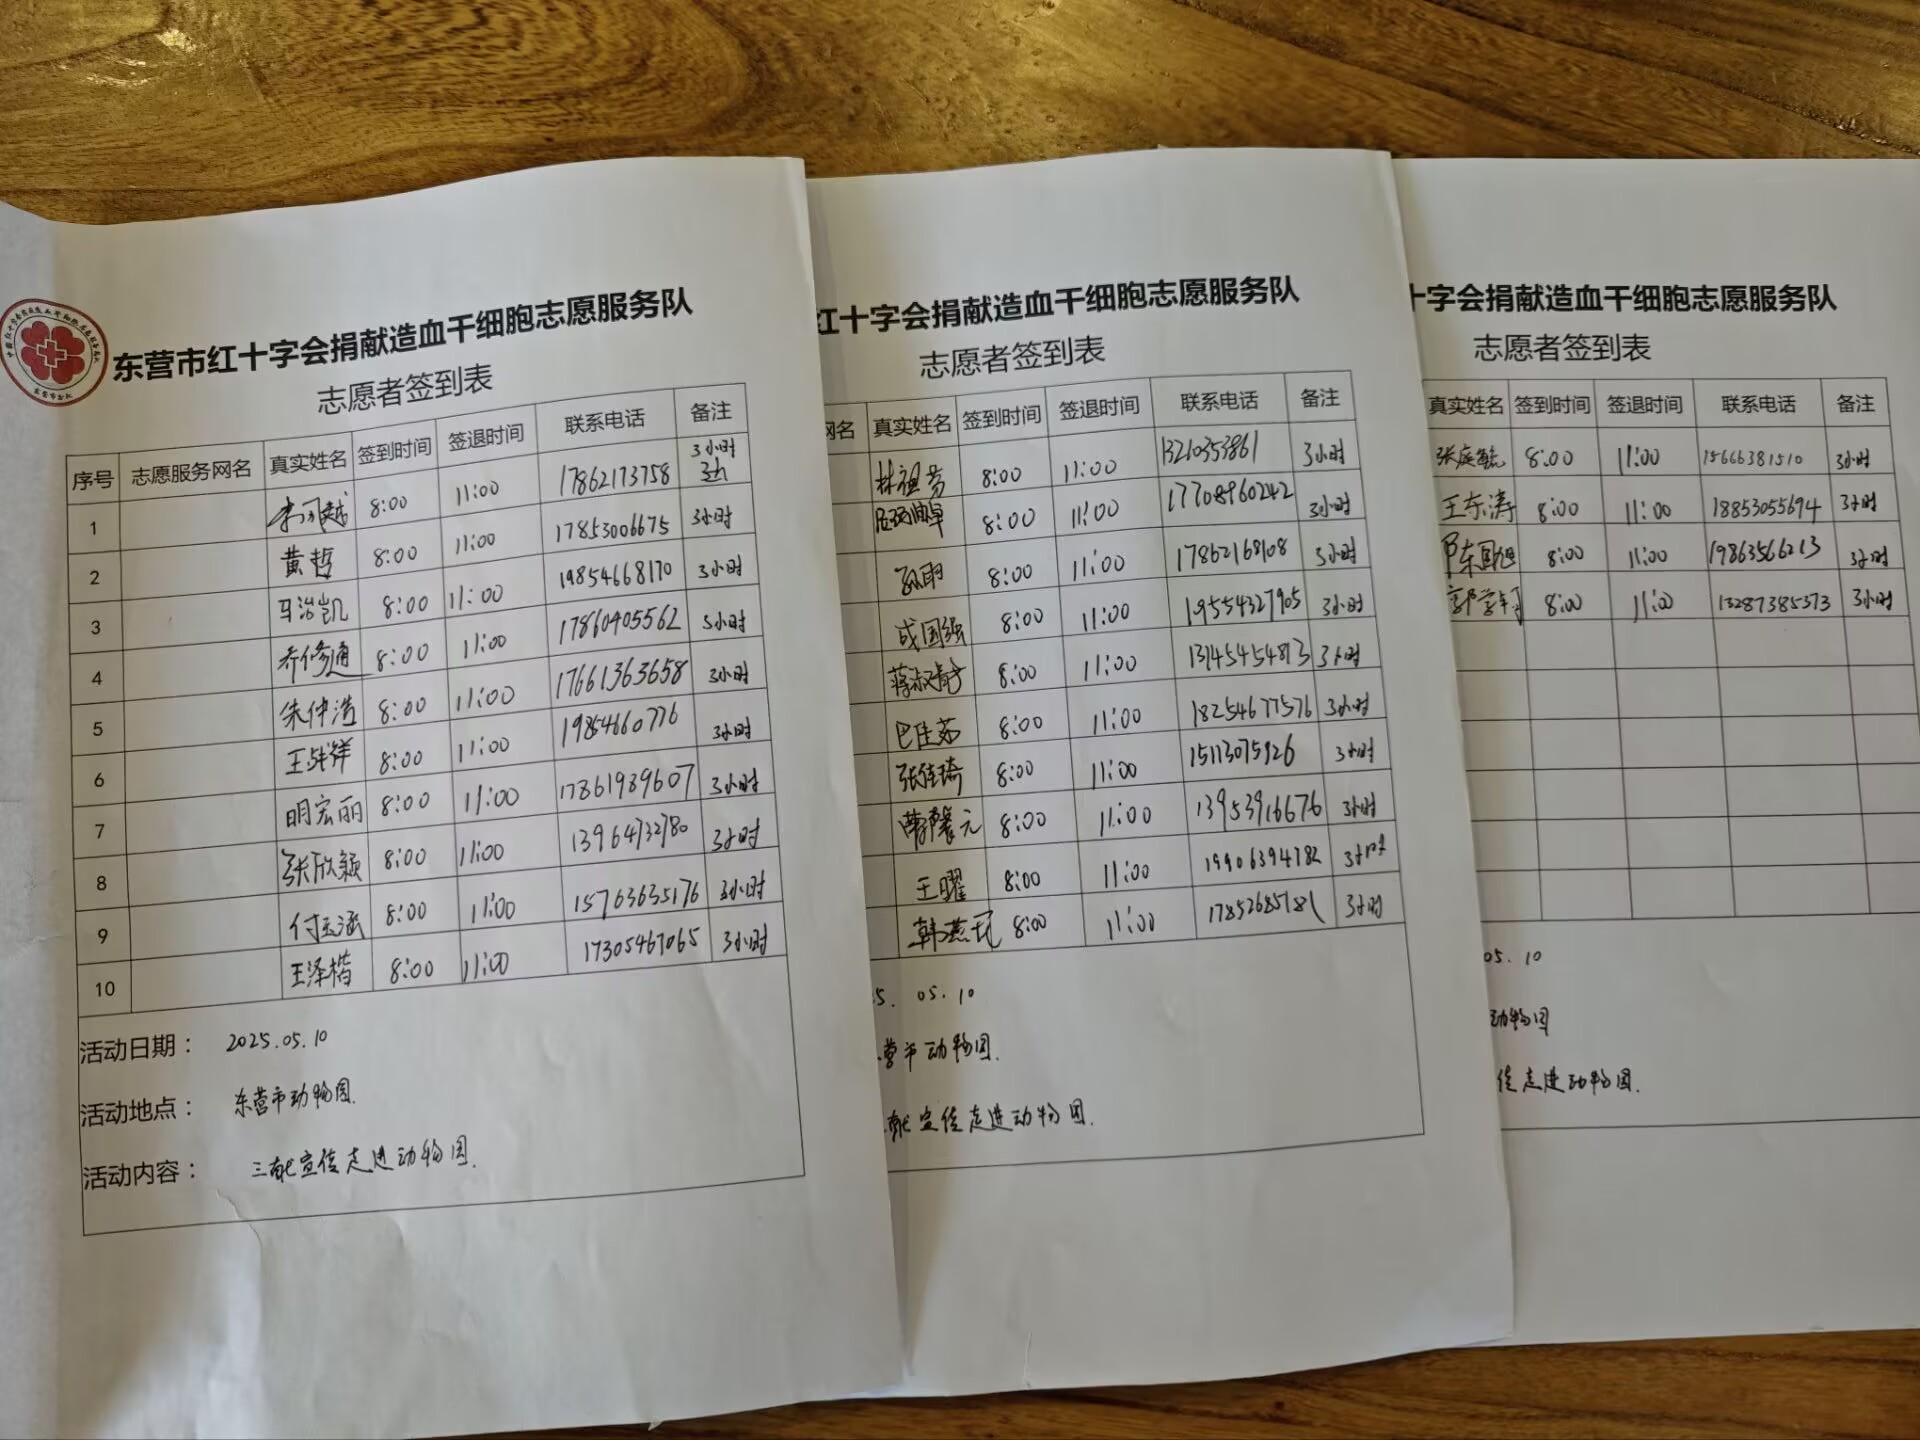 东营市红十字会捐献造血干细胞志愿服务队
志愿者签到表
序号 志愿服务网名 真实姓名 签到时间 签退时间 联系电话 备注
1 8:00 11:00 17862173758 3小时
2 黄哲 8:00 11:00 17853006675 3小时
3 马治凯 8:00 11:00 19854668170 3小时
4 乔修通 8:00 11:00 17860405562 3小时
5 朱仲浩 8:00 11:00 17661363658 3小时
6 8:00 11:00 19854660776 3小时
7 明宏丽 8:00 11:00 17861939607 3小时
8 张欣颖 8:00 11:00 13964732780 3小时
9 付玉涵 8:00 11:00 15763635176 3小时
10 王泽楷 8:00 11:00 17305467065 3小时
活动日期： 2025.05.10
活动地点： 东营市动物园.
活动内容： 三献宣传走进动物园.
红十字会捐献造血干细胞志愿服务队
志愿者签到表
网名 真实姓名 签到时间 签退时间 联系电话 备注
林祖芳 8:00 11:00 13210353861 3小时
8:00 11:00 17708960242 3小时
孙明 8:00 11:00 17862168108 3小时
成国强 8:00 11:00 19554327905 3小时
蒋淑静 8:00 11:00 13145454813 3小时
巴佳茹 8:00 11:00 18254677576 3小时
张佳琦 8:00 11:00 15113075926 3小时
8:00 11:00 13953916676 3小时
王曜 8:00 11:00 19906394782 3小时
8:00 11:00 17852685781 3小时
5.05.10
营市动物园.
献宣传走进动物园.
十字会捐献造血干细胞志愿服务队
志愿者签到表
真实姓名 签到时间 签退时间 联系电话 备注
张庭毓 8:00 11:00 15666381510 3小时
王东涛 8:00 11:00 18853055694 3小时
8:00 11:00 19863566213 3小时
8:00 11:00 13287385373 3小时
05.10
动物园
传走进动物园.